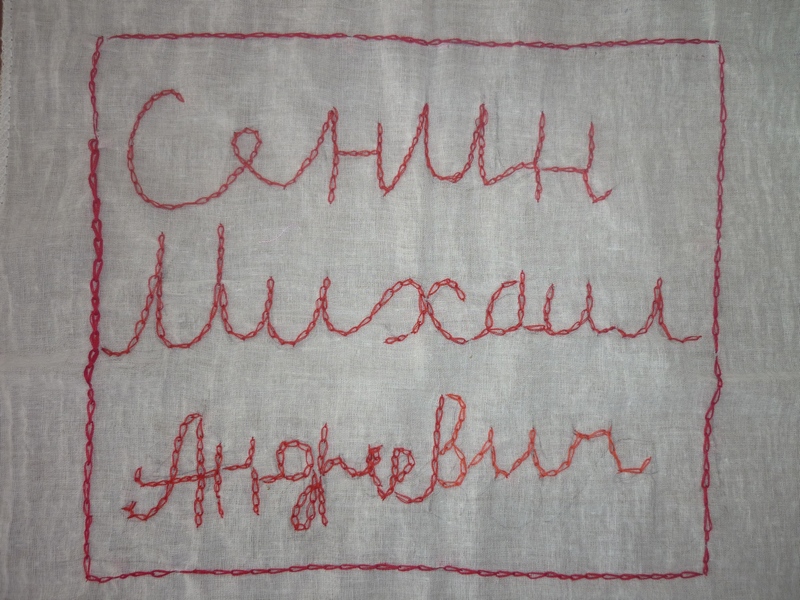 Сенин
Михаил
Андреевич